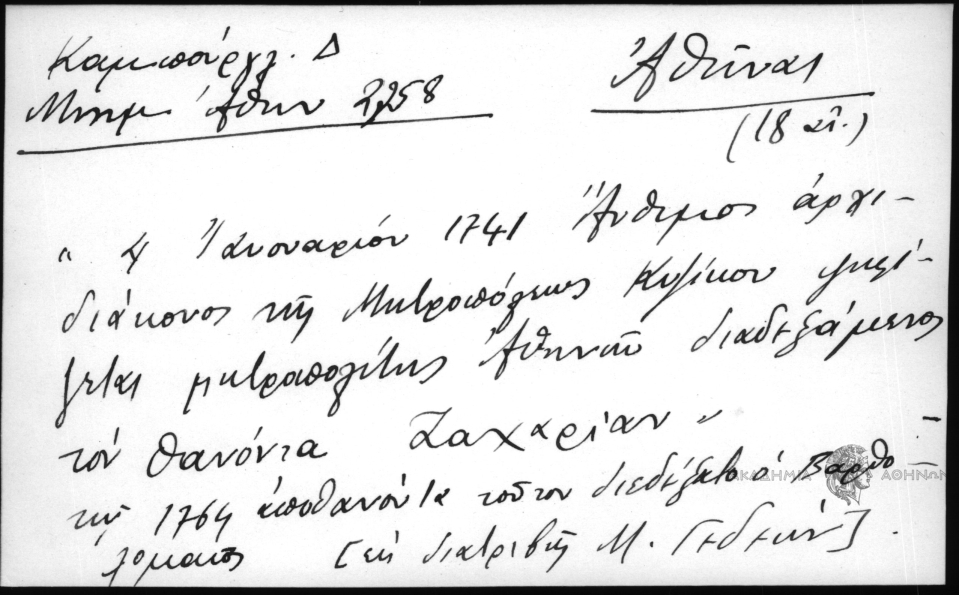 Καμπούργλ. Δ
Μνημ. Ἀθην 2, 258
Ἀθῆναι
(18 αἰ.)
" 4 Ἰανουαρίου 1741 Ἄνθιμος ἀρχι-
διάκονος τῆς Μητροπόλεως Κυζίκου ψηφί-
ζεται μητροπολίτης Ἀθηνῶν διαδεξάμενος
τόν θανόντα Ζαχαρίαν "
τῷ 1764 ἀποθανόντα τοῦτον διεδέξατο ὁ Βαρθο-
λομαῖος [ἐκ διατριβῆς Μ. Γεδεών].
ΑΚΑΔΗΜΙΑ ΑΘΗΝΩΝ